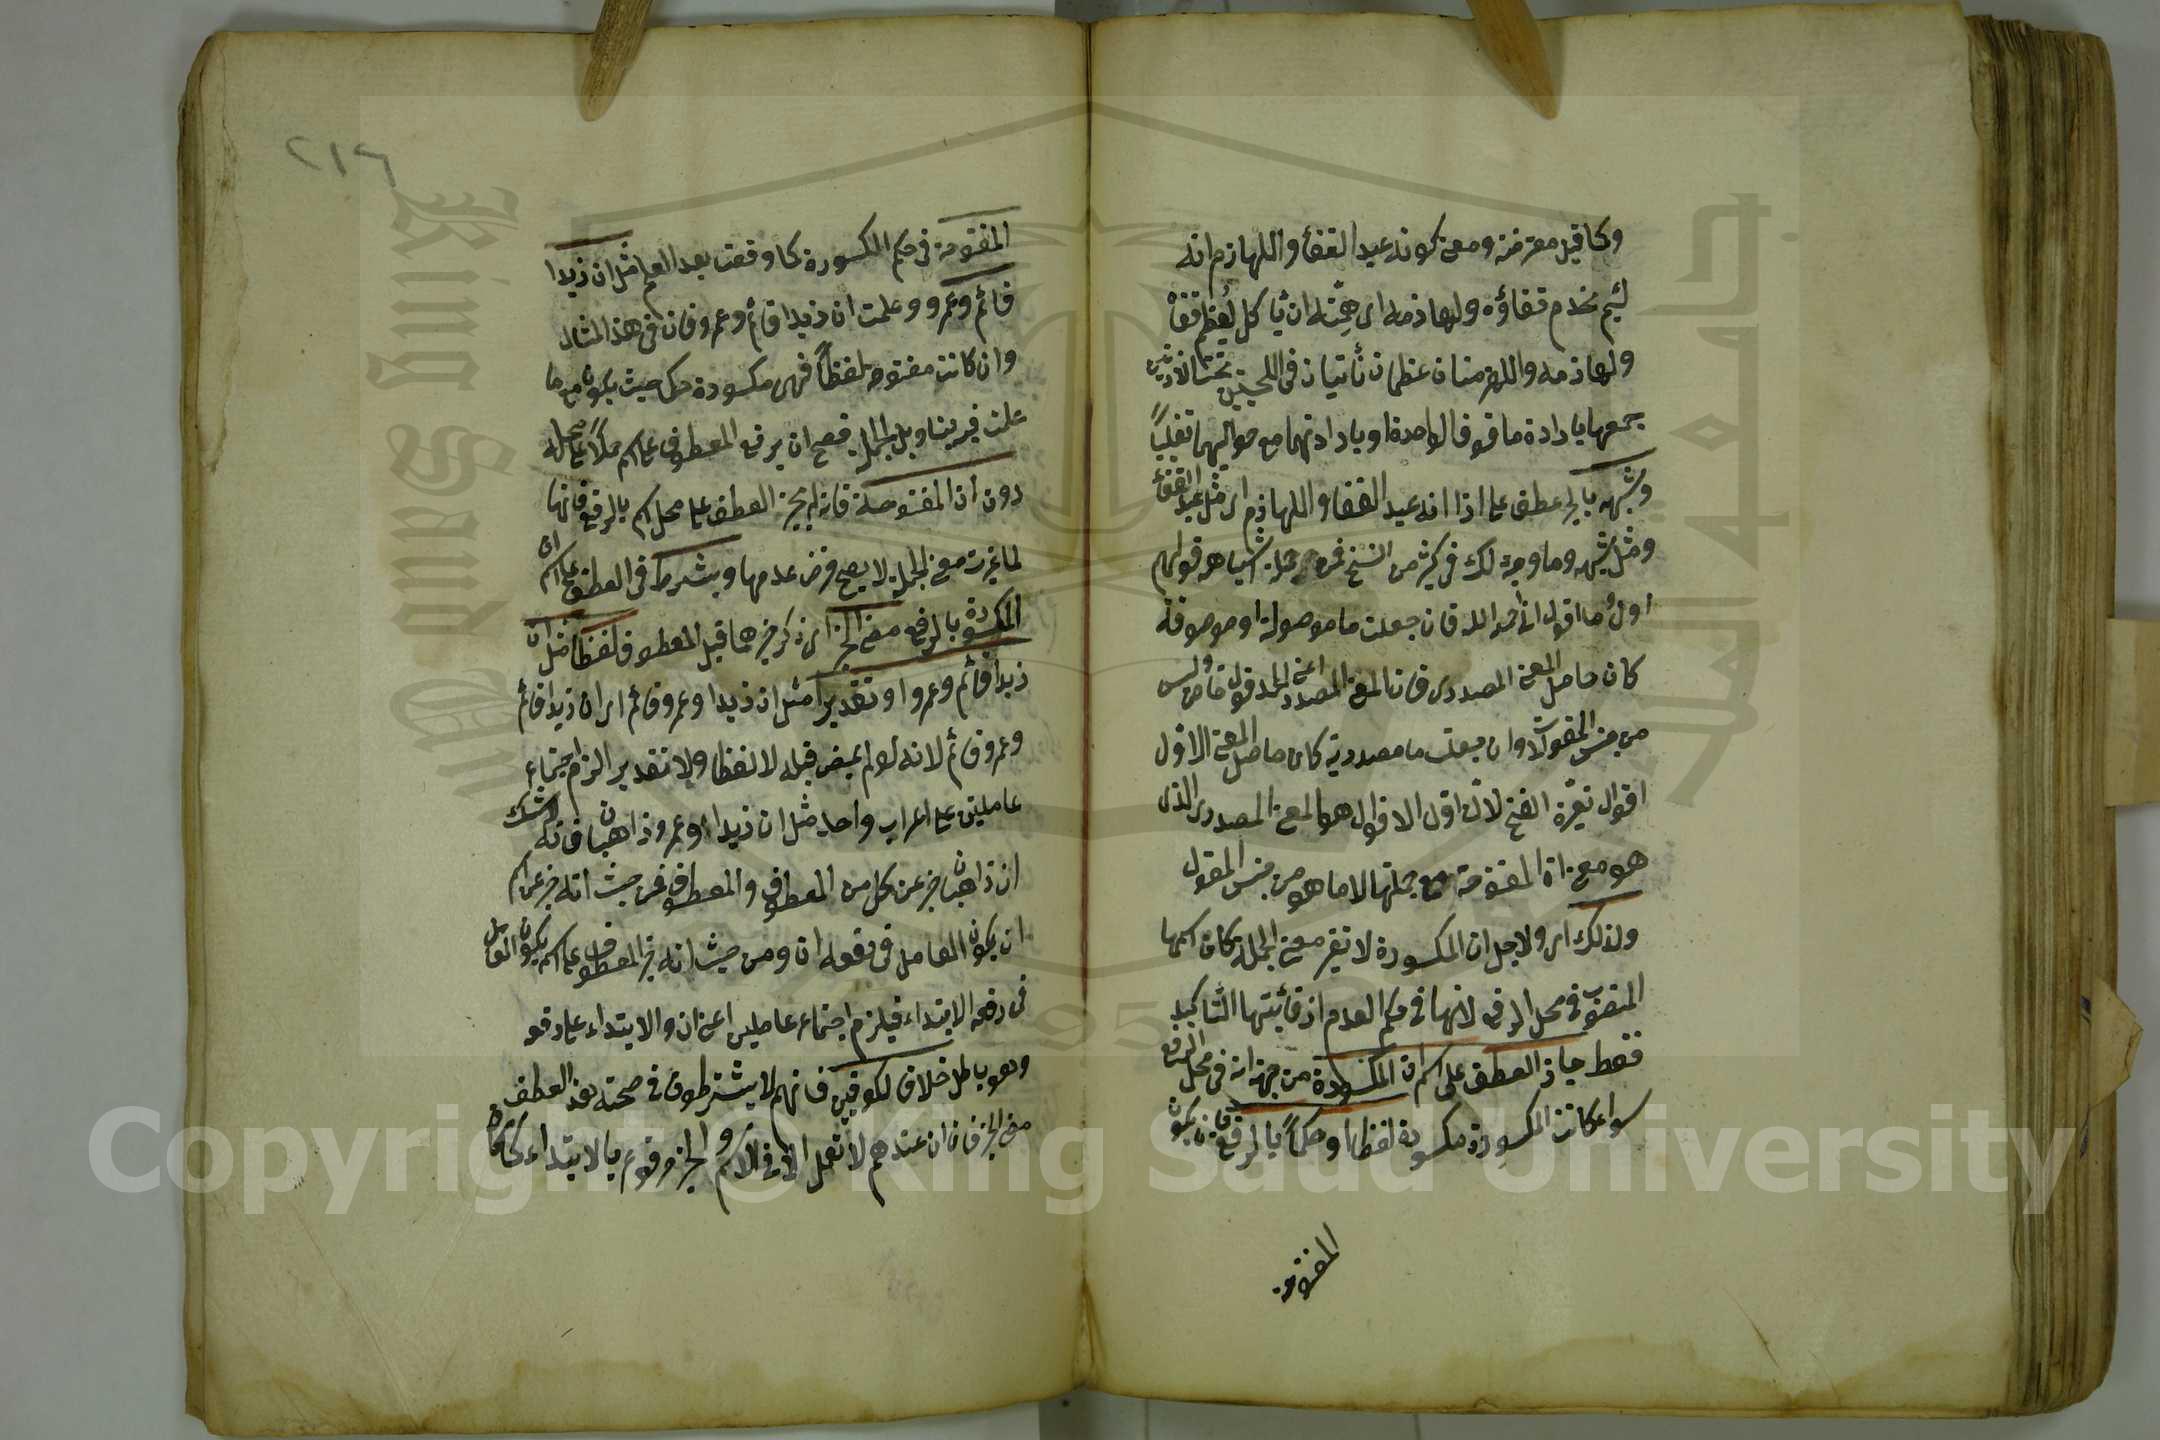 وكما قيل معترضة ومعنى كونه عبد القفا واللهازم انه
لئيم يخدم قفاؤه ولهازمه اى همته ان يأكل ليعظم قفاه
ولهازمه واللهزمتان عظمان ناتيان فى اللحيين تحت الاذنين
جمعهما بارادة ما فوق الواحدة او بارادتهما مع حواليهما تغليبًا
وشبهه بالجر عطف على اذا انه عبد القفا واللهازم اى مثل عبد القفا
ومثل شبهه وما وجد لك فى كثير من النسخ قولهم
اول ما اقول انى احمد الله فان جعلت ما موصولة او موصوفة
كان حاصل المعنى المصدرى فان المعنى المصدر اعنى الحمد قول خاص وليس
من جنس المقولات وان جعلت ما مصدرية كان حاصل المعنى الاول
اقوال تعين الفتح لان اول الاقوال هو المعنى المصدرى الذى
هو معنى ان المفتوحة مع جملتها لا ما هو من جنس المقول
ولذلك اى ولاجل ان المكسورة لا تغير معنى الجملة كان اسمها
المنصوب فى محل الرفع لانها فى حكم العدم اذ فائدتها التاكيد
فقط جاز العطف على اسم ان المكسورة من جهة انه فى محل الرفع
سواء كانت المكسورة مكسورة لفظا او حكمًا بالرفع بان يكون
المفتوحة
٢١٦
المفتوحة فى حكم المكسورة كما وقعت بعد العلم مثل ان زيدا
قائم وعمرو وعلمت ان زيدا قائم وعمرو فان فى هذا المثال
وان كانت مفتوحة لفظًا فهى مكسورة حكما حيث يكون مع ما
علمت فيه بتاويل الجملة فصح ان يرفع المعطوف على اسم حملًا على محله
دون ان المفتوحة فانه لم يجز العطف على محل اسمها بالرفع فانها
لما غيرت معنى الجملة لا يصح فرض عدمها ويشترط فى العطف على اسم ان
المكسورة بالرفع مضى الخبر اى ذكر خبرها قبل المعطوف لفظا مثل ان
زيدًا قائم وعمرو او تقديرًا مثل ان زيدا وعمرو قائم اى ان زيدا قائم
وعمرو قائم لانه لو لم يمض قبله لا لفظا ولا تقديرا لزم اجتماع
عاملين على اعراب واحد مثل ان زيدا وعمرو ذاهبان فانه لا شك
ان ذاهبان خبر عن كل من المعطوف والمعطوف فمن حيث انه خبر عن اسم
ان يكون العامل فى رفعه ان ومن حيث انه خبر المعطوف على اسم يكون العامل
فى رفعه الابتداء فيلزم اجتماع عاملين اعنى ان والابتداء على رفعه
وهو باطل خلافا لكوفيين فانهم لا يشترطون فى صحة هذا العطف
مضى الخبر فان ان عندهم لا تعمل الا فى الاسم والخبر مرفوع بالابتداء كما كان